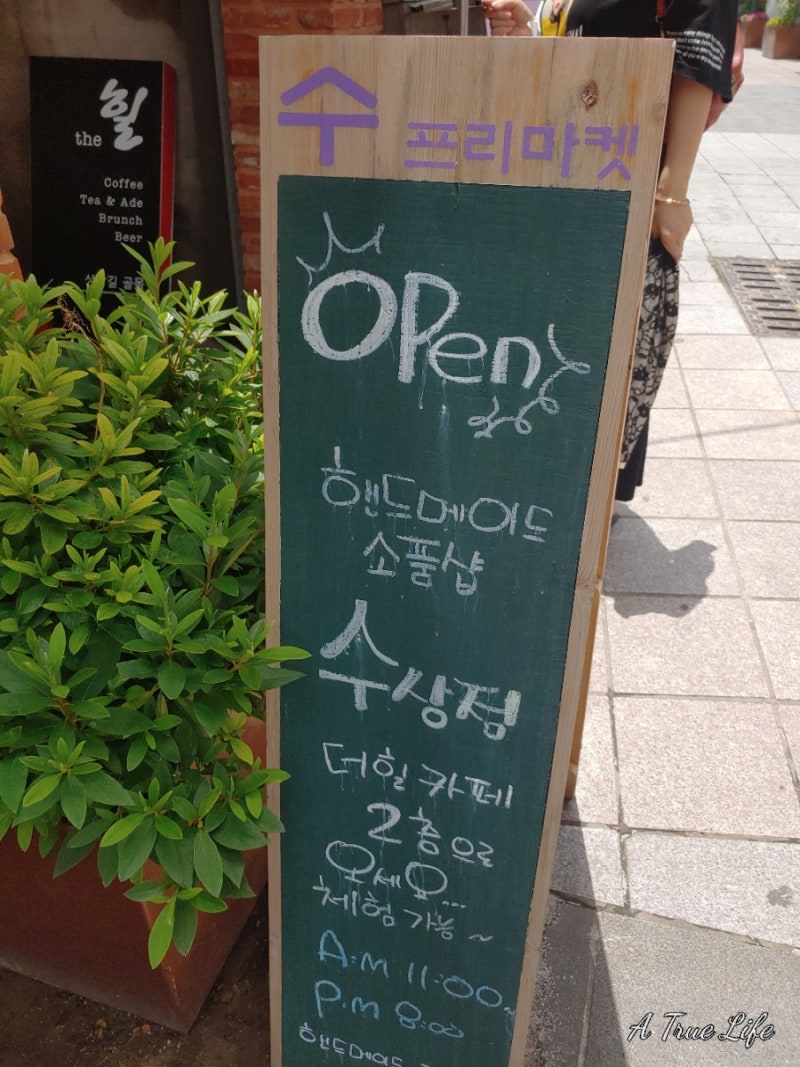 the 힐
Coffee
Tea & Ade
Brunch
Beer
길 골목
수 프리마켓
OPen
핸드메이드
소품샵
수상점
더힐 카페
2층으로
오세요...
체험 가능~
A.M 11:00
P.M 8:00
핸드메이드
A True Life